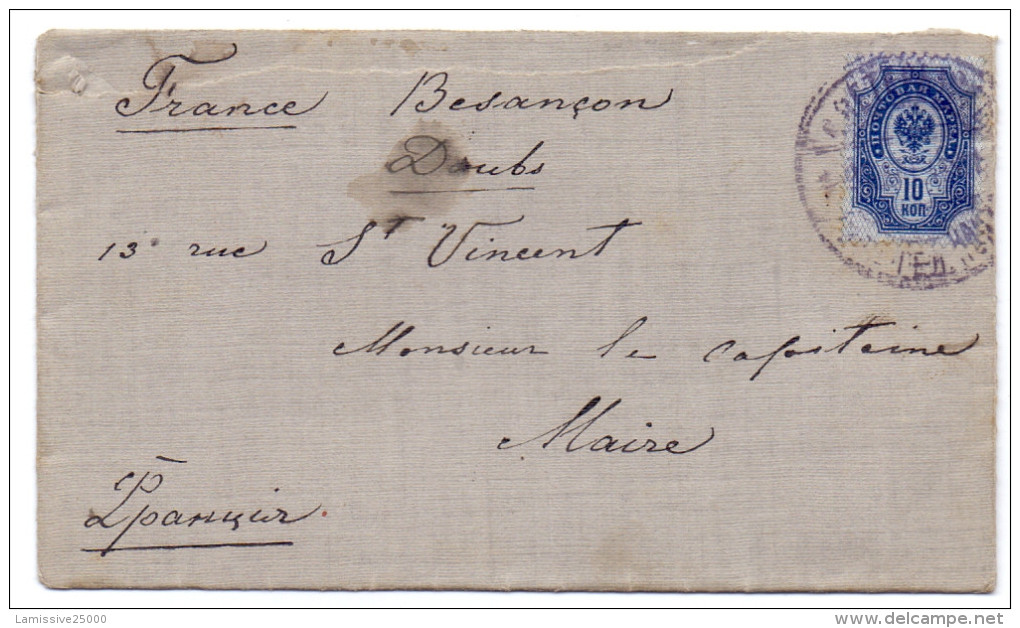 France Besançon
Doubs
13 rue St Vincent
Monsieur le capitaine
Maire
Франція.
ПОЧТОВАЯ МАРКА
10
КОП
Lamissive25000
delcampe.net